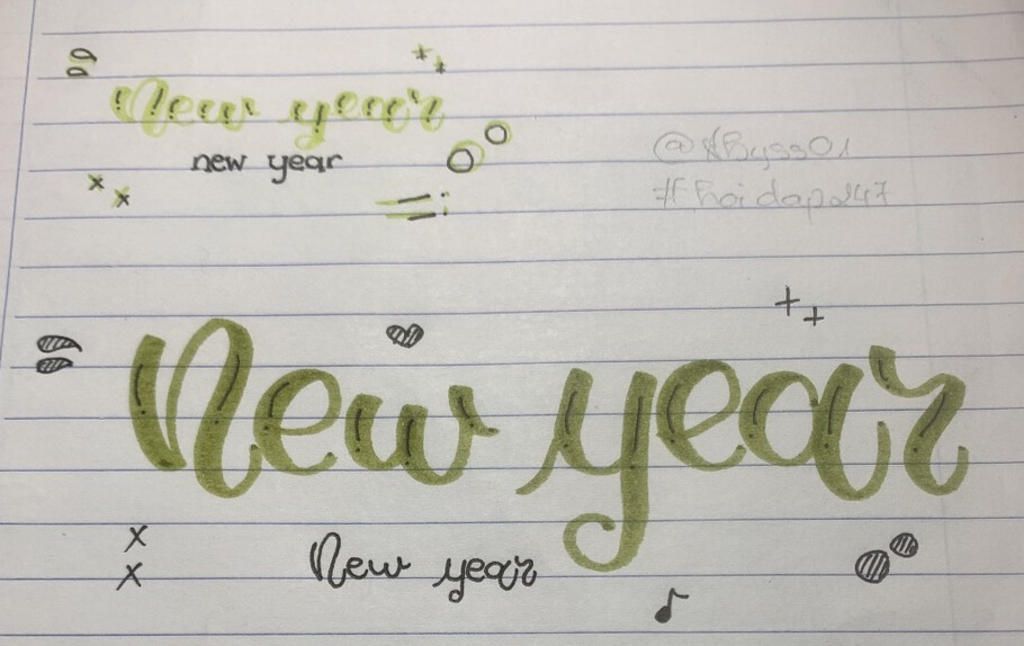 New year
new year
#hoidap247
New year
New year